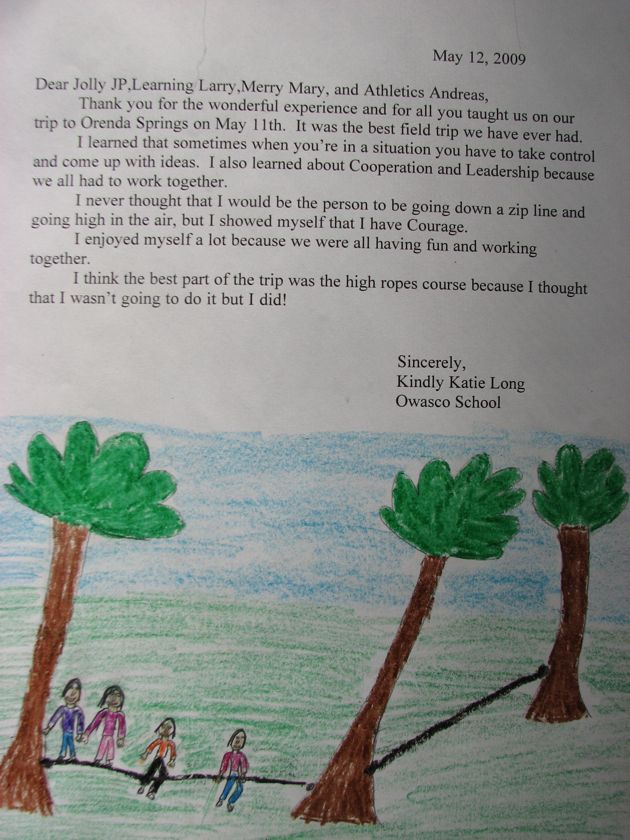 May 12, 2009
Dear Jolly JP,Learning Larry,Merry Mary, and Athletics Andreas,
Thank you for the wonderful experience and for all you taught us on our
trip to Orenda Springs on May 11th. It was the best field trip we have ever had.
I learned that sometimes when you're in a situation you have to take control
and come up with ideas. I also learned about Cooperation and Leadership because
we all had to work together.
I never thought that I would be the person to be going down a zip line and
going high in the air, but I showed myself that I have Courage.
I enjoyed myself a lot because we were all having fun and working
together.
I think the best part of the trip was the high ropes course because I thought
that I wasn't going to do it but I did!
Sincerely,
Kindly Katie Long
Owasco School